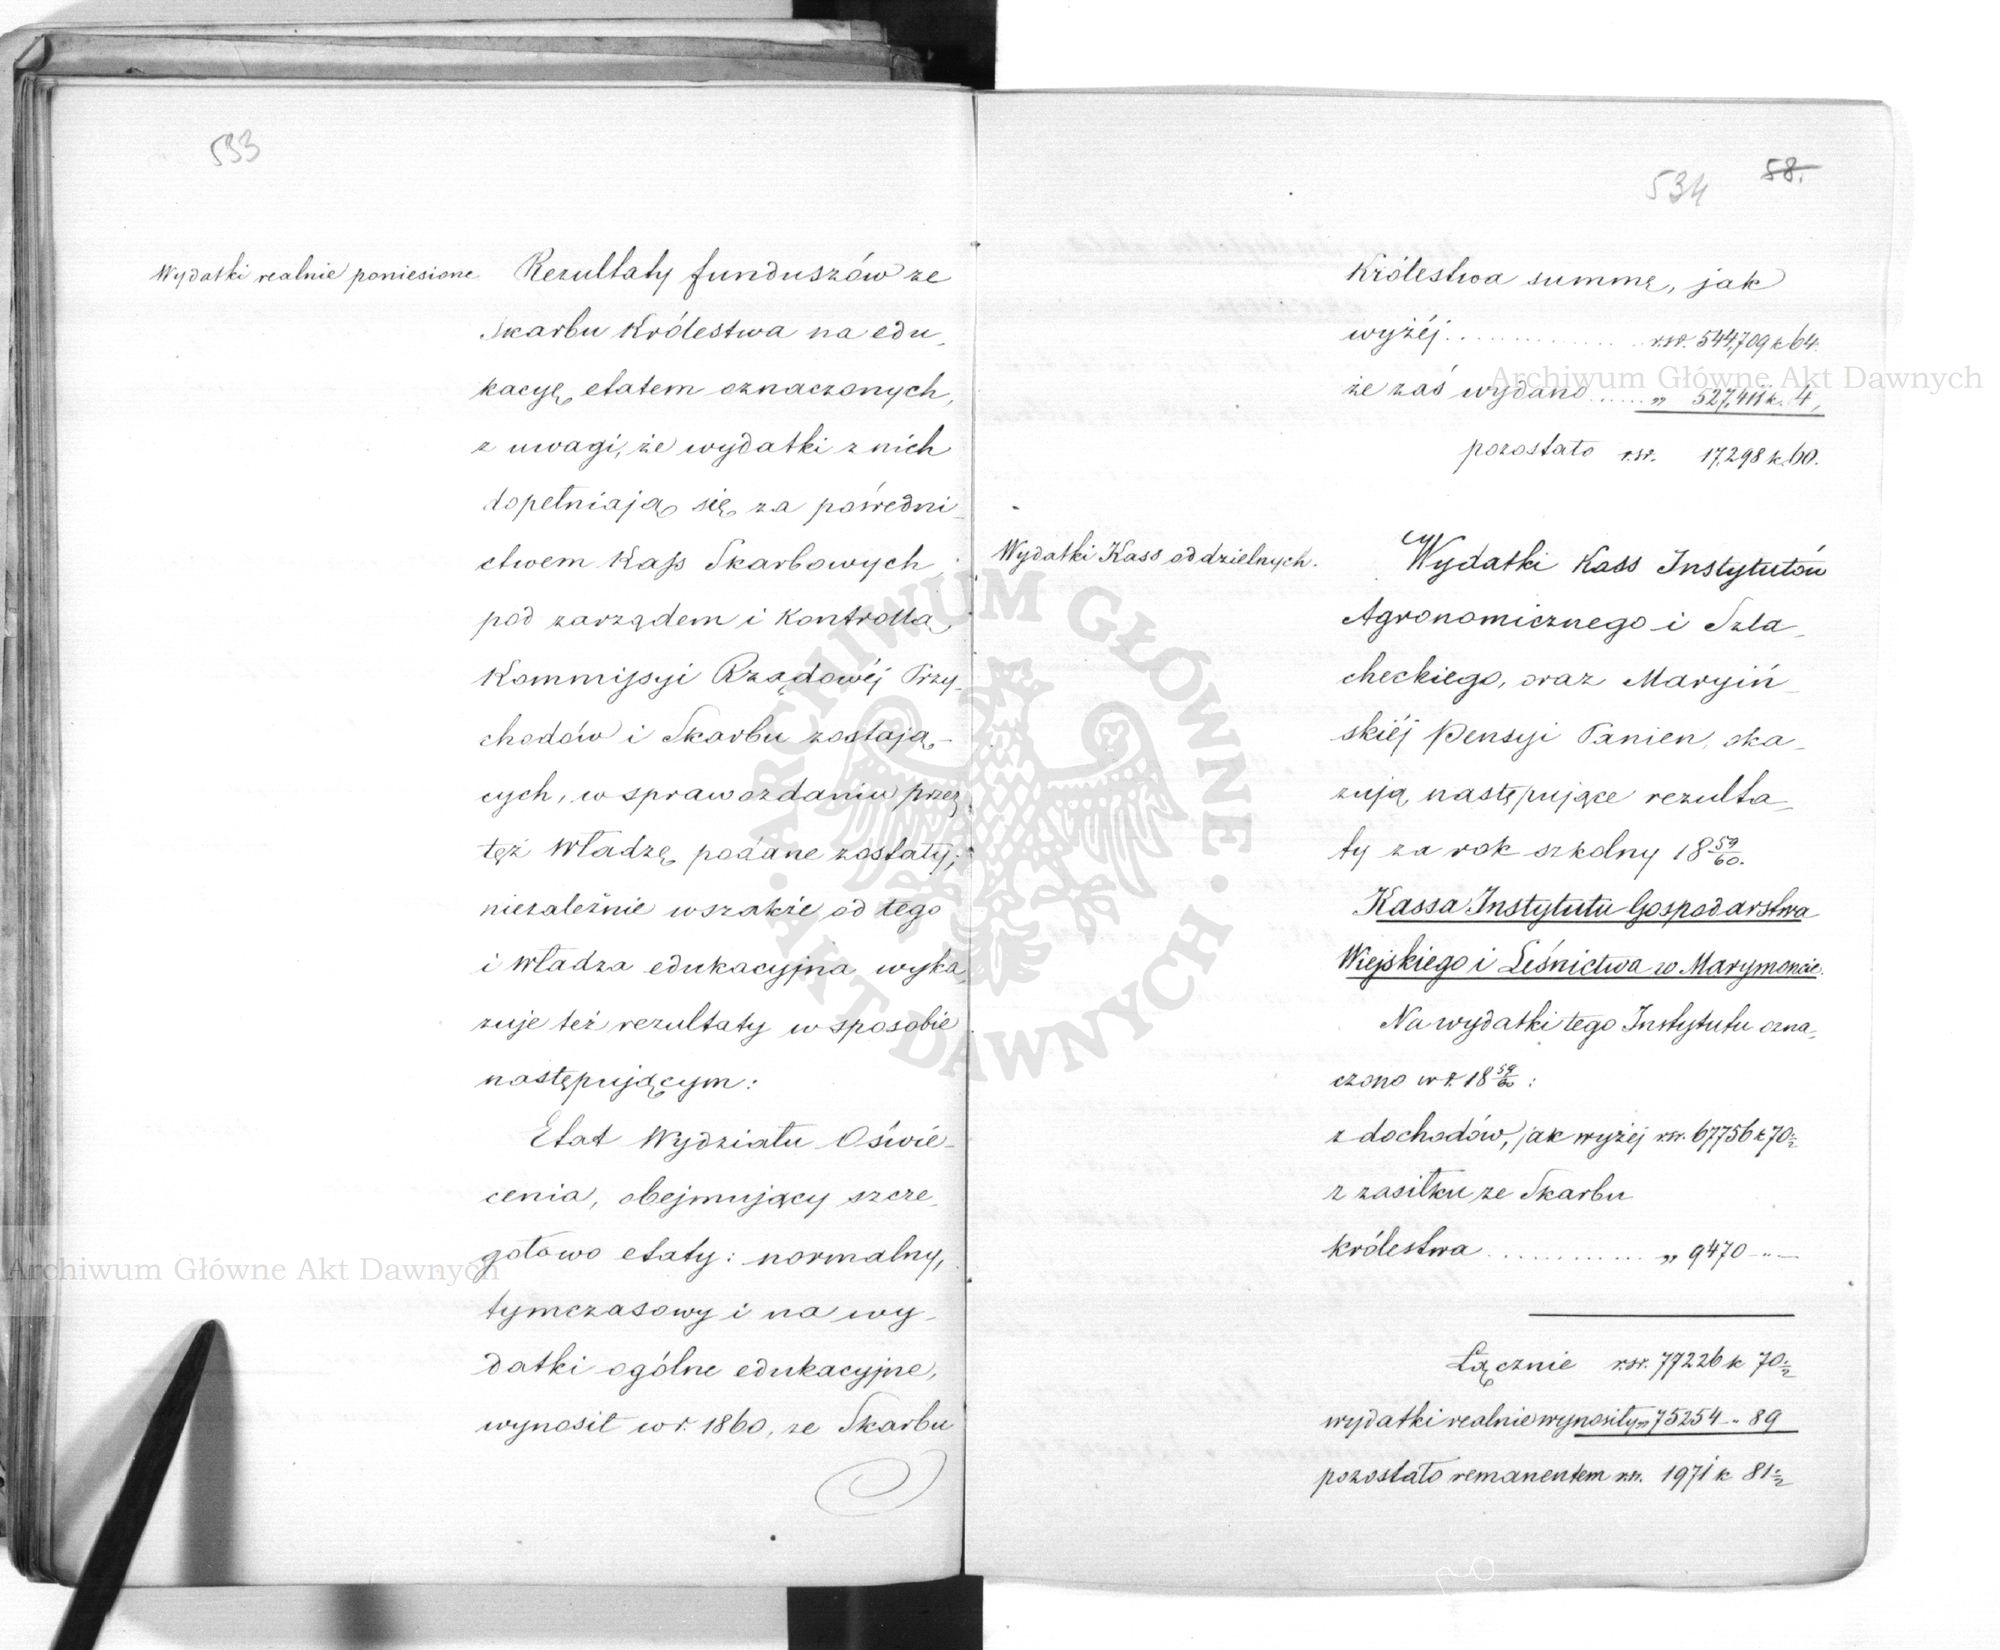 533
Wydatki realnie poniesione
Rezultaty funduszów ze
Skarbu Królestwa na edu-
kacyę, etatem oznaczonych,
z uwagi, że wydatki z nich
dopełniają się za pośredni-
ctwem Kass Skarbowych
pod zarządem i kontrollą
Kommissyi Rządowéj Przy-
chodów i Skarbu zostają-
cych, w sprawozdaniu przez
też Władzę podane zostały;
niezależnie wszakże od tego
i Władza edukacyjna wyka-
zuje też rezultaty w sposobie
następującym:
Etat Wydziału Oświe-
cenia, obejmujący szcze-
gółowo etaty: normalny,
tymczasowy i na wy-
datki ogólne edukacyjne,
wynosił w r. 1860, ze Skarbu
534 58.
Królestwa summę, jak
wyżéj .............. rsr. 544,709 k 64.
że zaś wydano ..... „ 527,411 k. 4,
pozostało r.sr. 17,298 k. 60.
Wydatki Kass oddzielnych.
Wydatki Kass Instytutów
Agronomicznego i Szla-
checkiego, oraz Maryiń-
skiéj Pensyi Panien, oka-
zują następujące rezulta-
ty za rok szkolny 18 59/60.
Kassa Instytutu Gospodarstwa
Wiejskiego i Leśnictwa w Marymoncie.
Na wydatki tego Instytutu ozna-
czono w r. 18 59/60 :
z dochodów, jak wyżej rsr. 67756 k 70 1/2
z zasiłku ze Skarbu
Królestwa .............. „ 9470 - „ -
Łącznie r.sr. 77226 k 70 1/2
wydatki realnie wynosiły „ 75254 - „ 89
pozostało remanentem rsr. 1971 k 81 1/2
Archiwum Główne Akt Dawnych
Archiwum Główne Akt Dawnych
· ARCHIWUM GŁÓWNE · AKT DAWNYCH ·